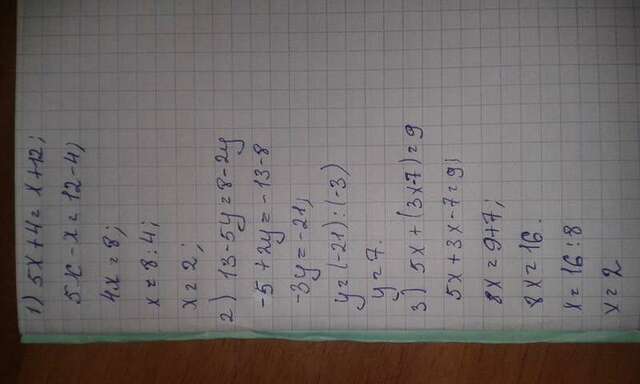 1) 5x+4=x+12;
5x-x=12-4;
4x=8;
x=8:4;
x=2;
2) 13-5y=8-2y
-5+2y=-13-8
-3y=-21;
y=(-21):(-3)
y=7.
3) 5x+(3x-7)=9
5x+3x-7=9;
8x=9+7;
8x=16.
x=16:8
x=2